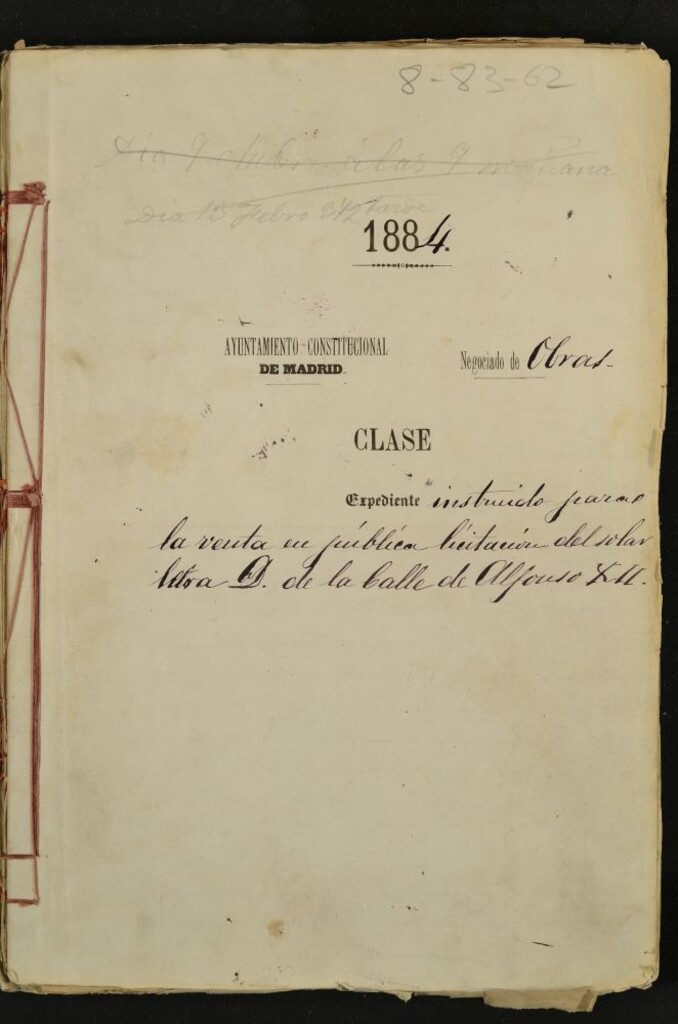 8-83-62
Dia 13 Febro 3 1/2 tarde
1884.
AYUNTAMIENTO-CONSTITUCIONAL
DE MADRID.
Negociado de Obras.
CLASE
Expediente instruido para
la venta en pública licitacion del solar
letra D. de la Calle de Alfonso XII.